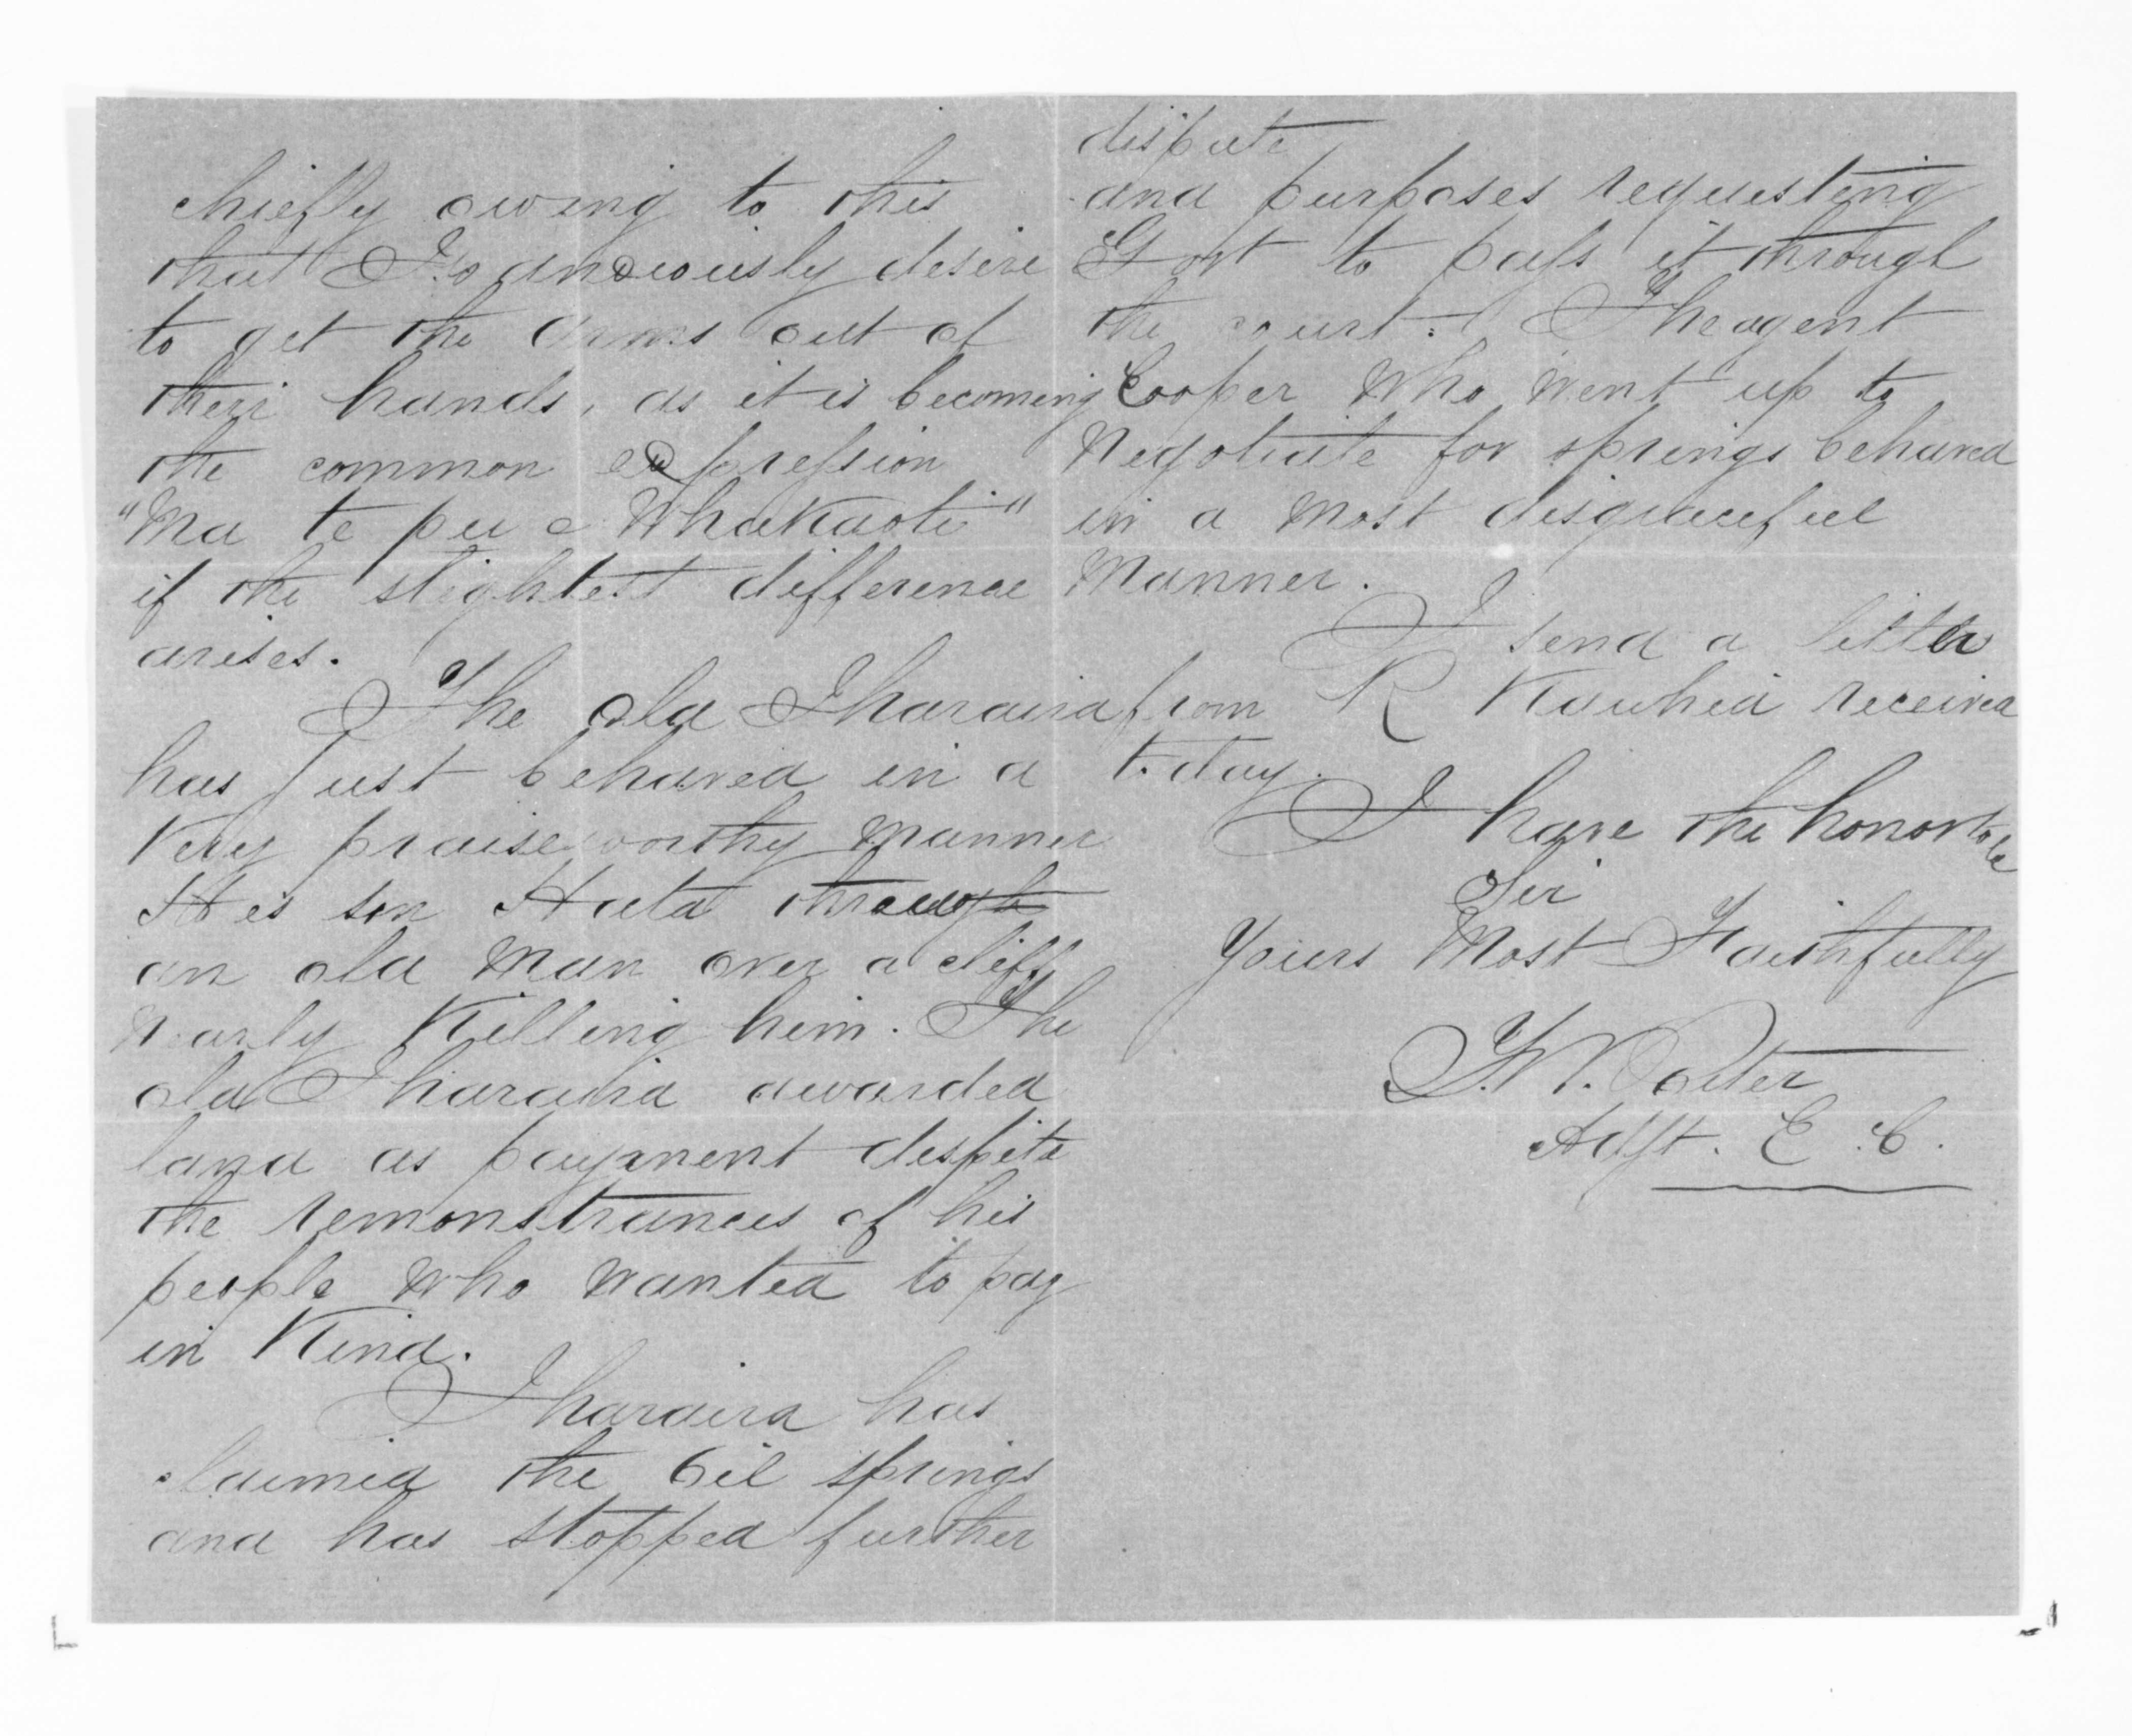 chiefly owing to this
that I so anxiously desire
to get the arms out of
their hands, as it is becoming
the common expression
"Ma te pu e Whakaoti"
if the slightest difference
arises.
The old Iharaira
has just behaved in a
very praiseworthy manner
His son Huta through
an old man over a cliff
nearly Killing him. The
old Iharaira awarded
land as payment despite
the remonstrances of his
people who wanted to pay
in Kind.
Iharaira has
claimed the Oil springs
and has stopped further
dispute
and purposes requesting
Govt to pass it through
the court. The agent
Cooper who went up to
Negotiate for springs behaved
in a most disgraceful
Manner.
I send a letter
from R Kawhia received
today.
I have the honor to be
Sir
Yours Most Faithfully
T.W. Porter
Adjt. E.C.